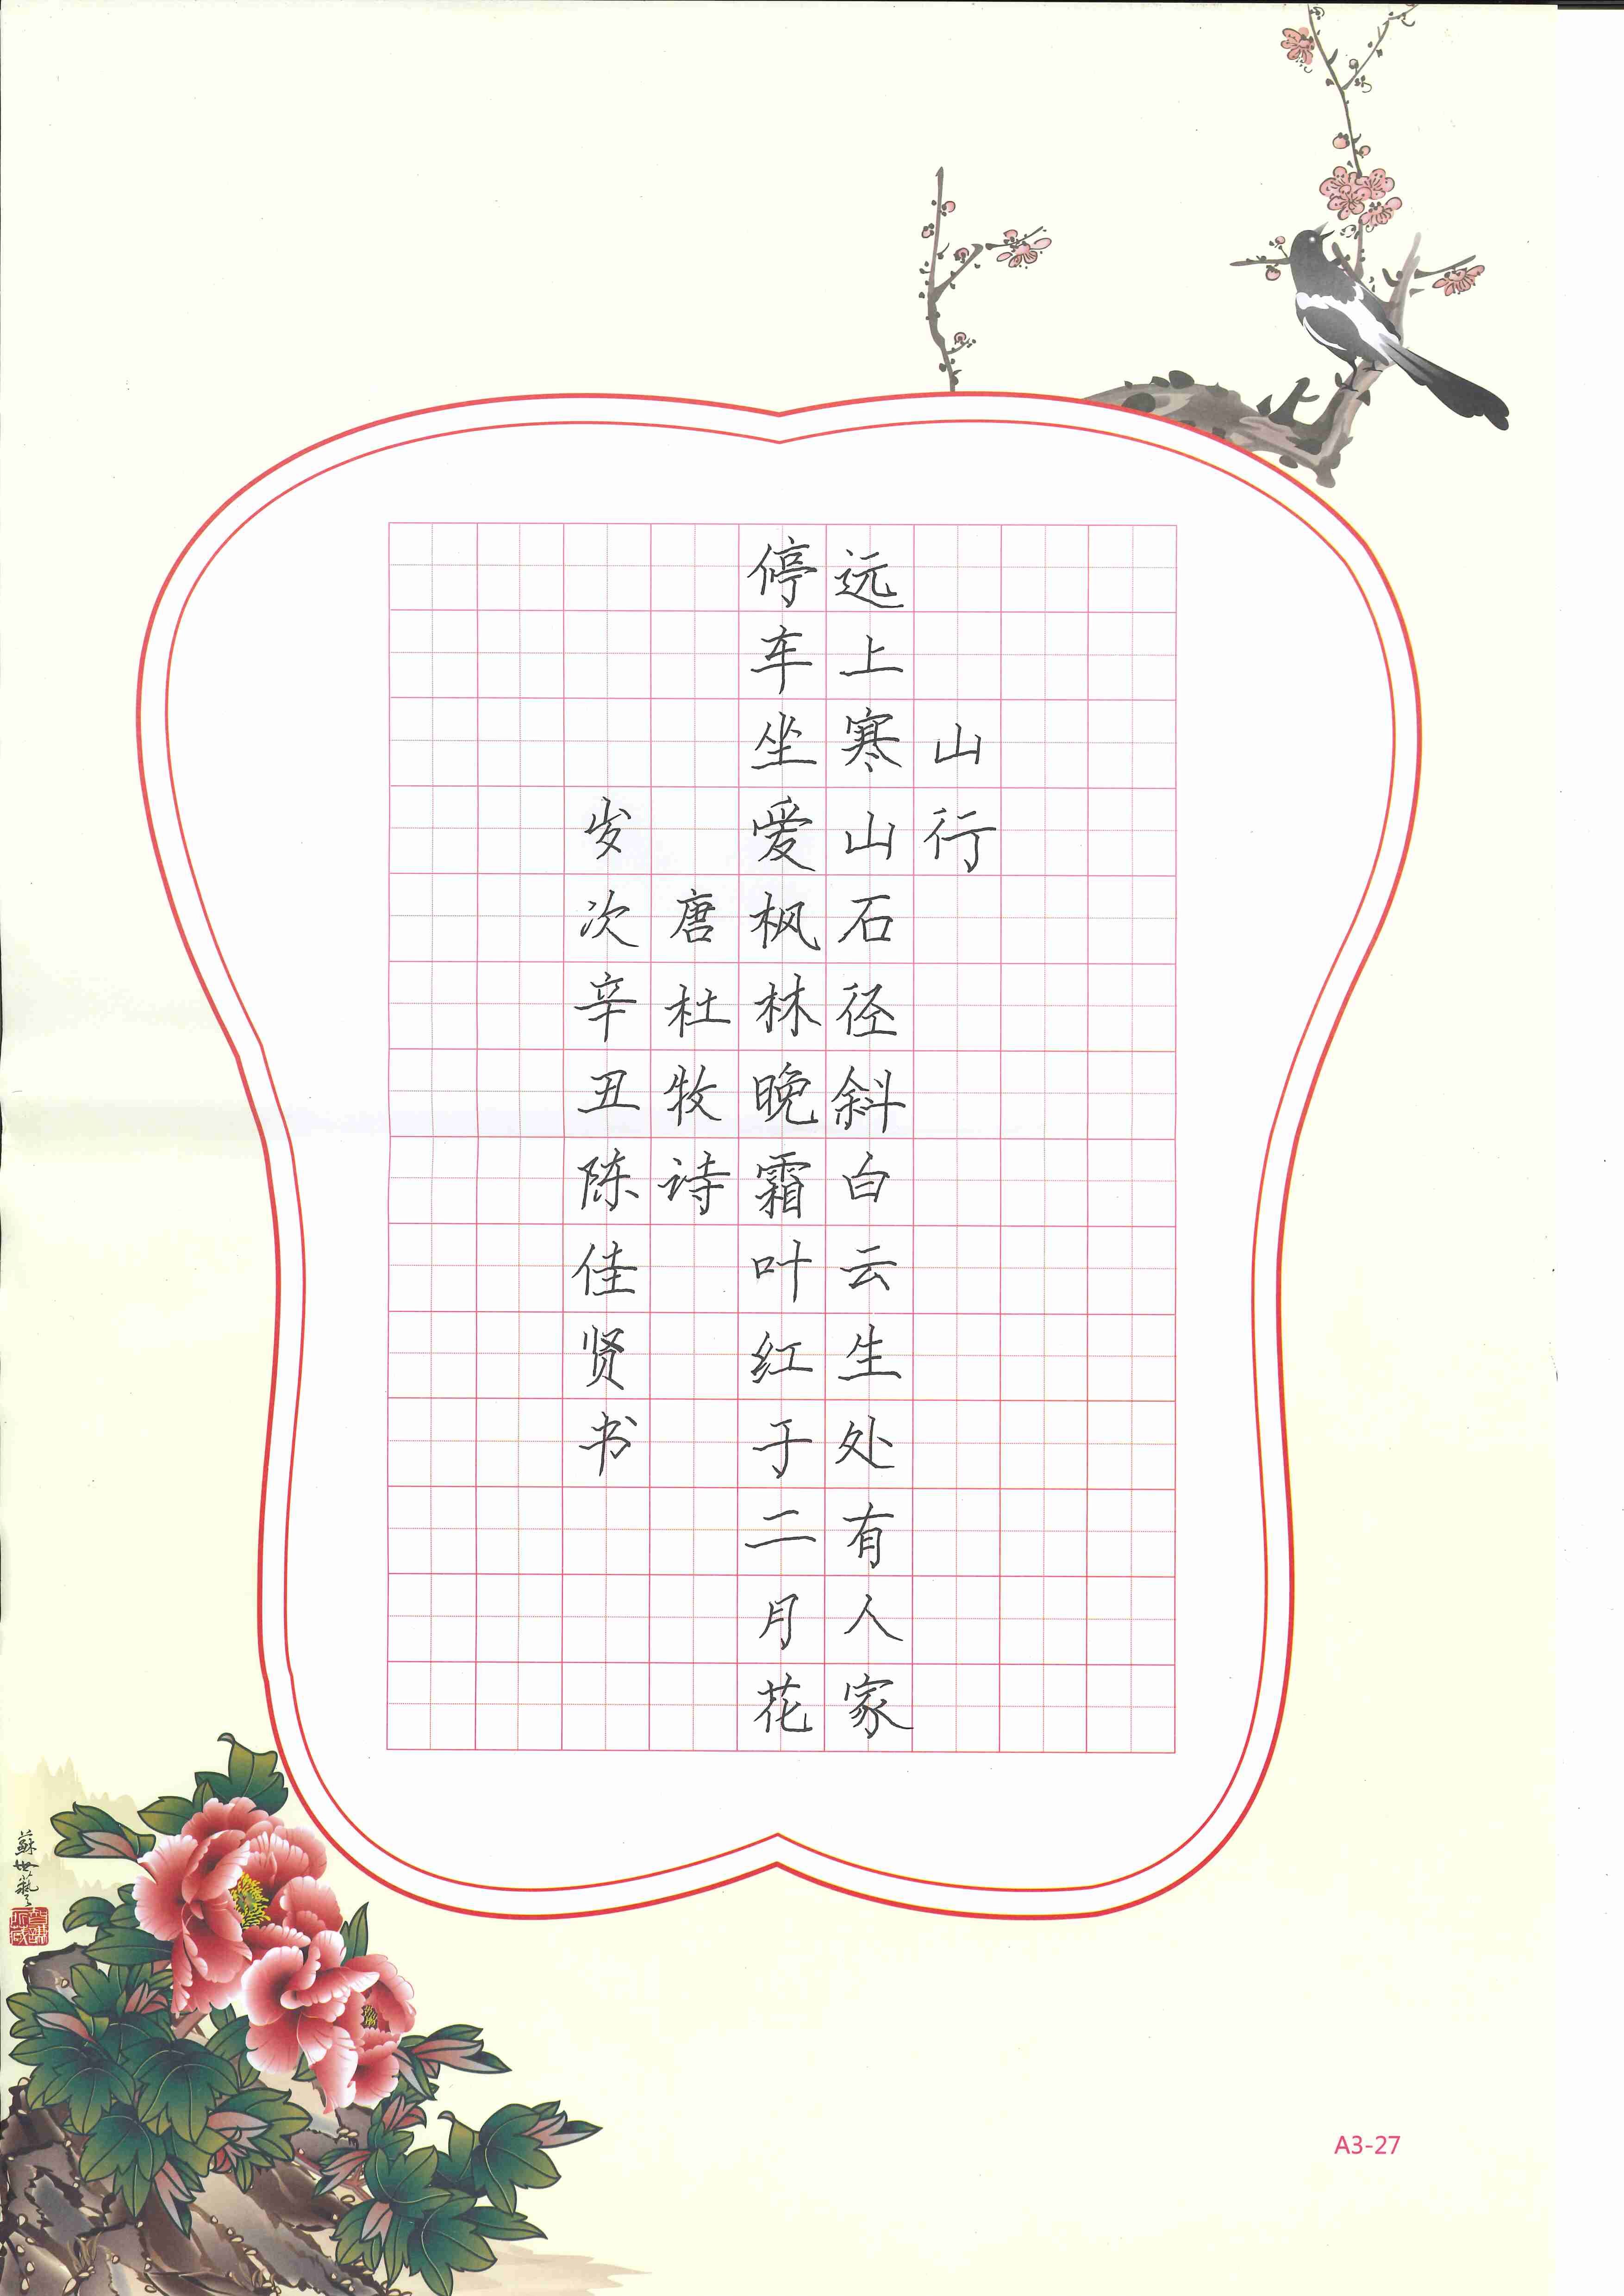 山行
远上寒山石径斜白云生处有人家
停车坐爱枫林晚霜叶红于二月花
唐杜牧诗
岁次辛丑陈佳贤书
蘇世藝
A3-27